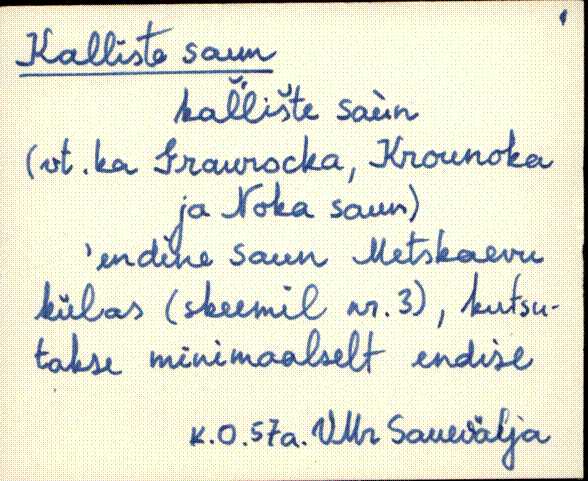 Kalliste saun
kall̆ište saùn
(vt. ka Graurocka, Krounoka
ja Noka saun)
'endine saun Metskaevu
külas (skeemil nr. 3), kutsu-
takse minimaalselt endise
K.O. 57a. VMr Sauevälja